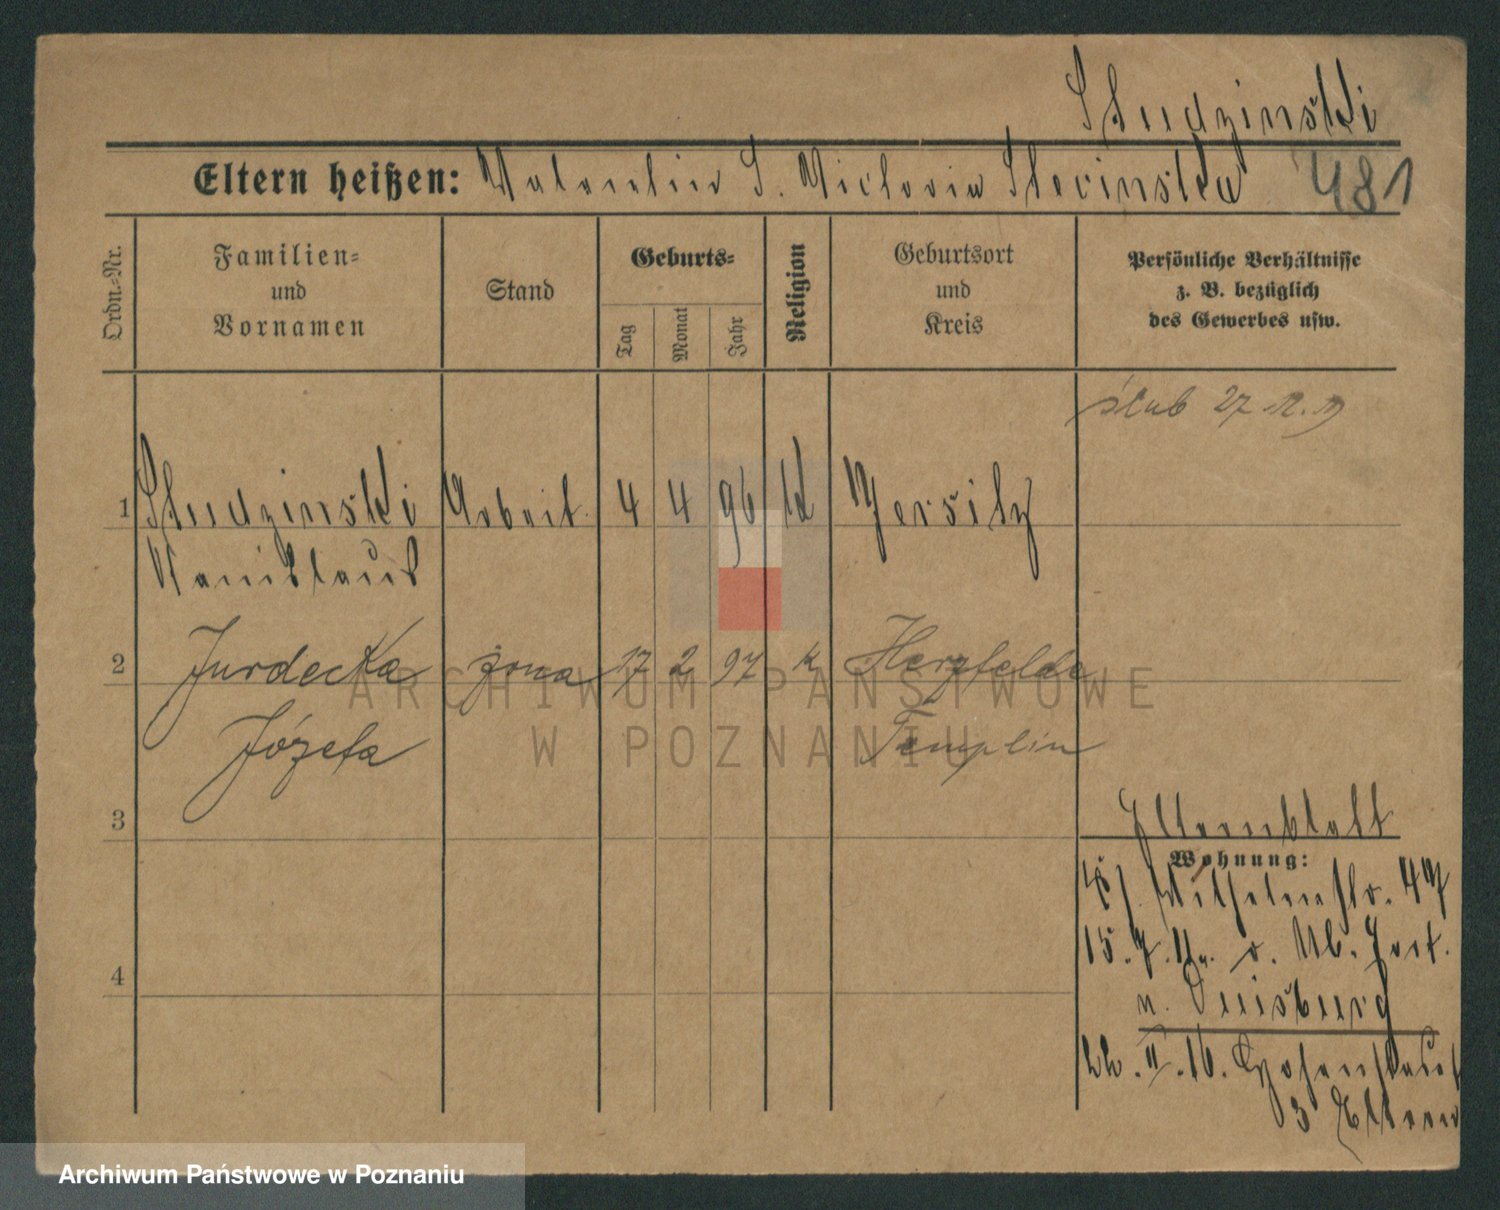 Studzinski
Eltern heißen: Valentin S. Victoria Skorinska 481
Ordn.-Nr.
Familien-
und
Vornamen
Stand
Geburts-
Tag
Monat
Jahr
Religion
Geburtsort
und
Kreis
Persönliche Verhältnisse
z. B. bezüglich
des Gewerbes usw.
ślub 27.12.19
1 Studzinski Arbeit. 4 4 96 k Jersitz
Stanislaus
2 Jurdecka żona 17 2 97 k Herzfelde
Józefa Templin
3
Elternblatt
Wohnung:
Wilhelmstr. 47
15.7.
4
n. Duisburg
22.II.16. Hohenstauf
3 Eltern
ARCHIWUM PAŃSTWOWE
W POZNANIU
Archiwum Państwowe w Poznaniu